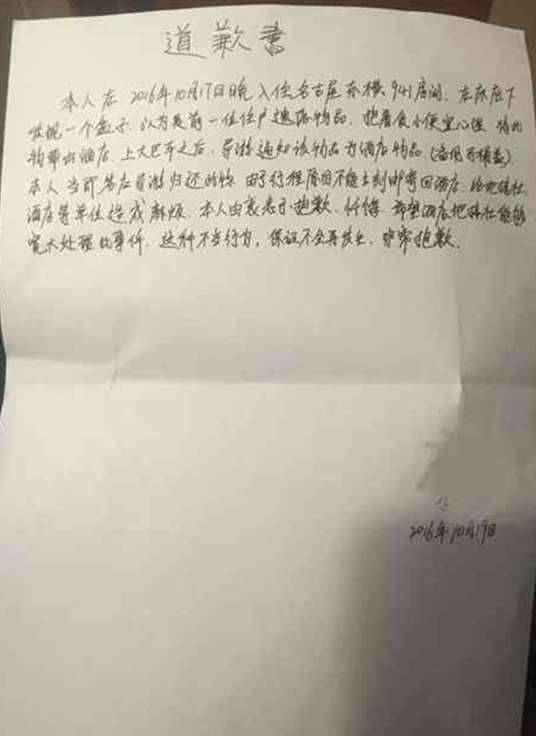 道歉書
本人在2016年10月17日晚入住名古屋东横941房间,在床底下
发现一个盒子,以为是前一位住户遗落物品,抱着贪小便宜心理,将此
物带出酒店,上大巴车之后,导游通知该物品为酒店物品(备用马桶盖).
本人当即答应导游归还此物,由于行程原因不能立刻邮寄回酒店,给地接社,
酒店等单位造成麻烦.本人由衷表示抱歉、忏悔.希望酒店地接社能够
宽大处理此事件.这种不当行为,保证不会再发生.非常抱歉.
2016年10月19日